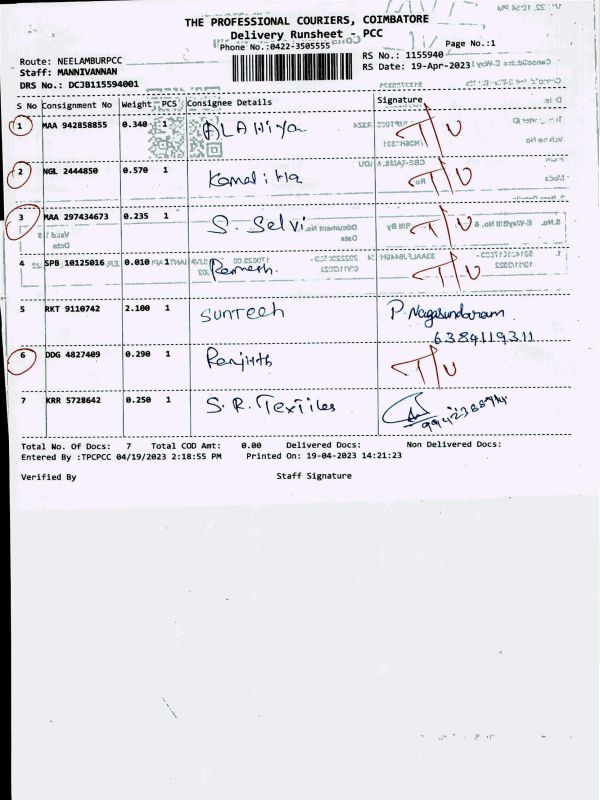 THE PROFESSIONAL COURIERS, COIMBATORE
Delivery Runsheet - PCC
Phone No.:0422-3505555
Page No.:1
Route: NEELAMBURPCC
RS No.: 1155940
Staff: MANNIVANNAN
RS Date: 19-Apr-2023
DRS No.: DCJB115594001
S No Consignment No Weight PCS Consignee Details Signature
1 MAA 942858855 0.340 1 T/U
2 NGL 2444850 0.570 1 T/U
3 MAA 297434673 0.235 1 S. Selvi T/U
4 SPB 10125016 0.010 1 Ramesh. T/U
5 RKT 9110742 2.100 1 SUNTECH P. Nagasundaram
6384119311
6 DDG 4827409 0.290 1 Ranjith T/U
7 KRR 5728642 0.250 1 S.R. Textiles
Total No. Of Docs: 7 Total COD Amt: 0.00 Delivered Docs: Non Delivered Docs:
Entered By :TPCPCC 04/19/2023 2:18:55 PM Printed On: 19-04-2023 14:21:23
Verified By Staff Signature